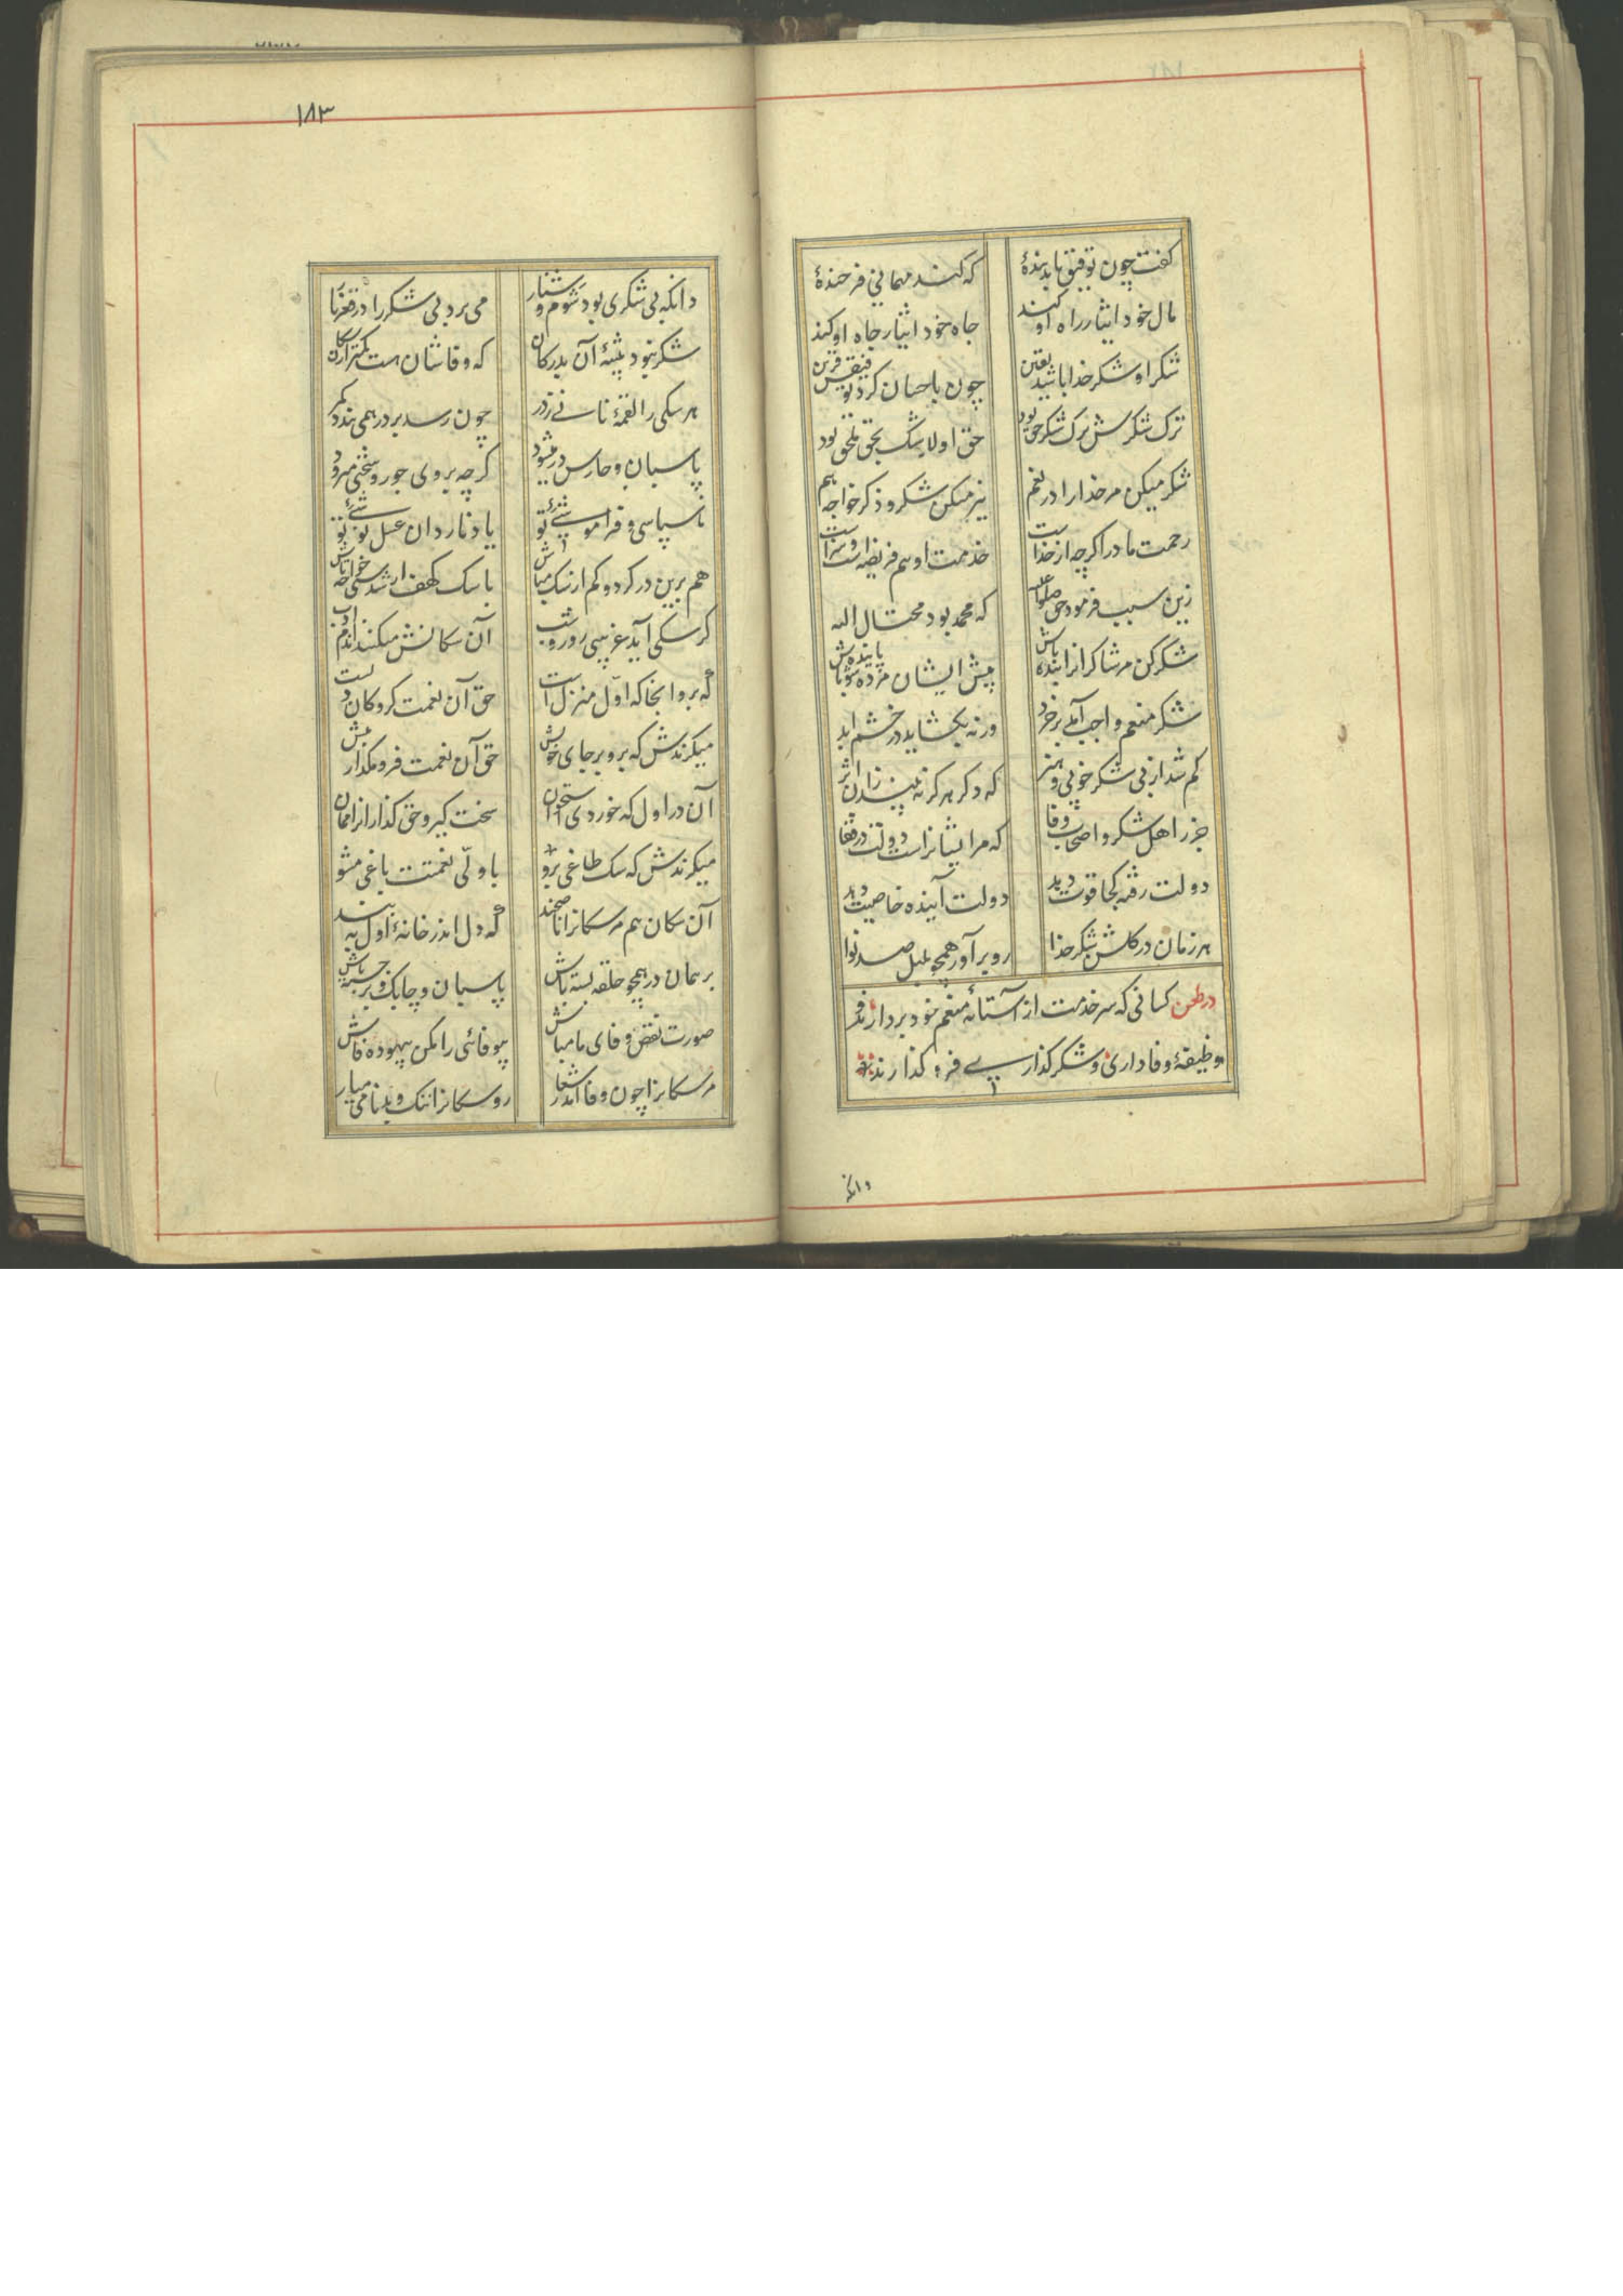 کفت چون توفیق یابد بندهٔ که کند مهمانی فرخندهٔ
مال خود ایثار راه او کند جاه خود ایثار جاه او کند
شکر او شکر خدا باشد یقین چون باحسان کرد توفیقش قرین
ترک شکرش ترک شکر حق بود حق او لا شک بحق ملحق بود
شکر میکن مر خدا را در نعم نیز میکن شکر و ذکر خواجه هم
رحمت مادر اکرچه از خداست خدمت او هم فریضه است و سزاست
زین سبب فرمود حق صلوا علیه که محمد بود محتال الیه
شکر کن مر شاکرانرا بنده باش پیش ایشان مرده شو پاینده باش
شکر منعم واجب آمد برخرد ورنه بکشاید در خشم ابد
کم شد از بی شکر خوبی و هنر که دکر هرکز نه بیند زان اثر
جز ز اهل شکر و اصحاب وفا که مر ایشانراست دولت در قفا
دولت رفته کجا قوت دهد دولت آینده خاصیت دهد
هر زمان در کلشن شکر خدا رو برآور همچو بلبل صد نوا
در طعن کسانی که سر خدمت از آستانهٔ منعم خود بردارند و
وظیفهٔ وفاداری و شکر کذاری فرو کذارند
دانکه
۱۸۳
دانکه بی شکری بود شوم و شنار می برد بی شکر را در قعر نار
شکر نبود پیشهٔ آن بدرکان که وفاشان هست کمتر از سکان
هر سکی را لقمهٔ نانی ز در چون رسد بر در همی بندد کمر
پاسبان و حارس در میشود کرچه بر وی جور و سختی میرود
ناسپاسی و فراموشئ تو یاد نارد آن عسل نوشئ تو
هم برین در کرد و کم از سک مباش با سک کهف ار شدستی خواجه تاش
کر سکی آید غریبی روز و شب آن سکانش میکنند آندم ادب
که برو آنجا که اوّل منزل است حق آن نعمت کروکان دلست
میکزندش که برو بر جای خویش حق آن نعمت فرو مکذار بیش
آن در اول که خوردی استخوان سخت کیر و حق کذار آنرا ممان
میکزندش که سک طاغی برو با ولّی نعمتت باغی مشو
آن سکان هم مر سکانرا ناصحند که دل اندر خانهٔ اول به بند
بر همان در همچو حلقه بسته باش پاسبان و چابک و برجسته باش
صورت نقض وفای ما مباش بیوفائی را مکن بیهوده فاش
مر سکانرا چون وفا آمد شعار رو سکانرا ننک و بدنامی میار